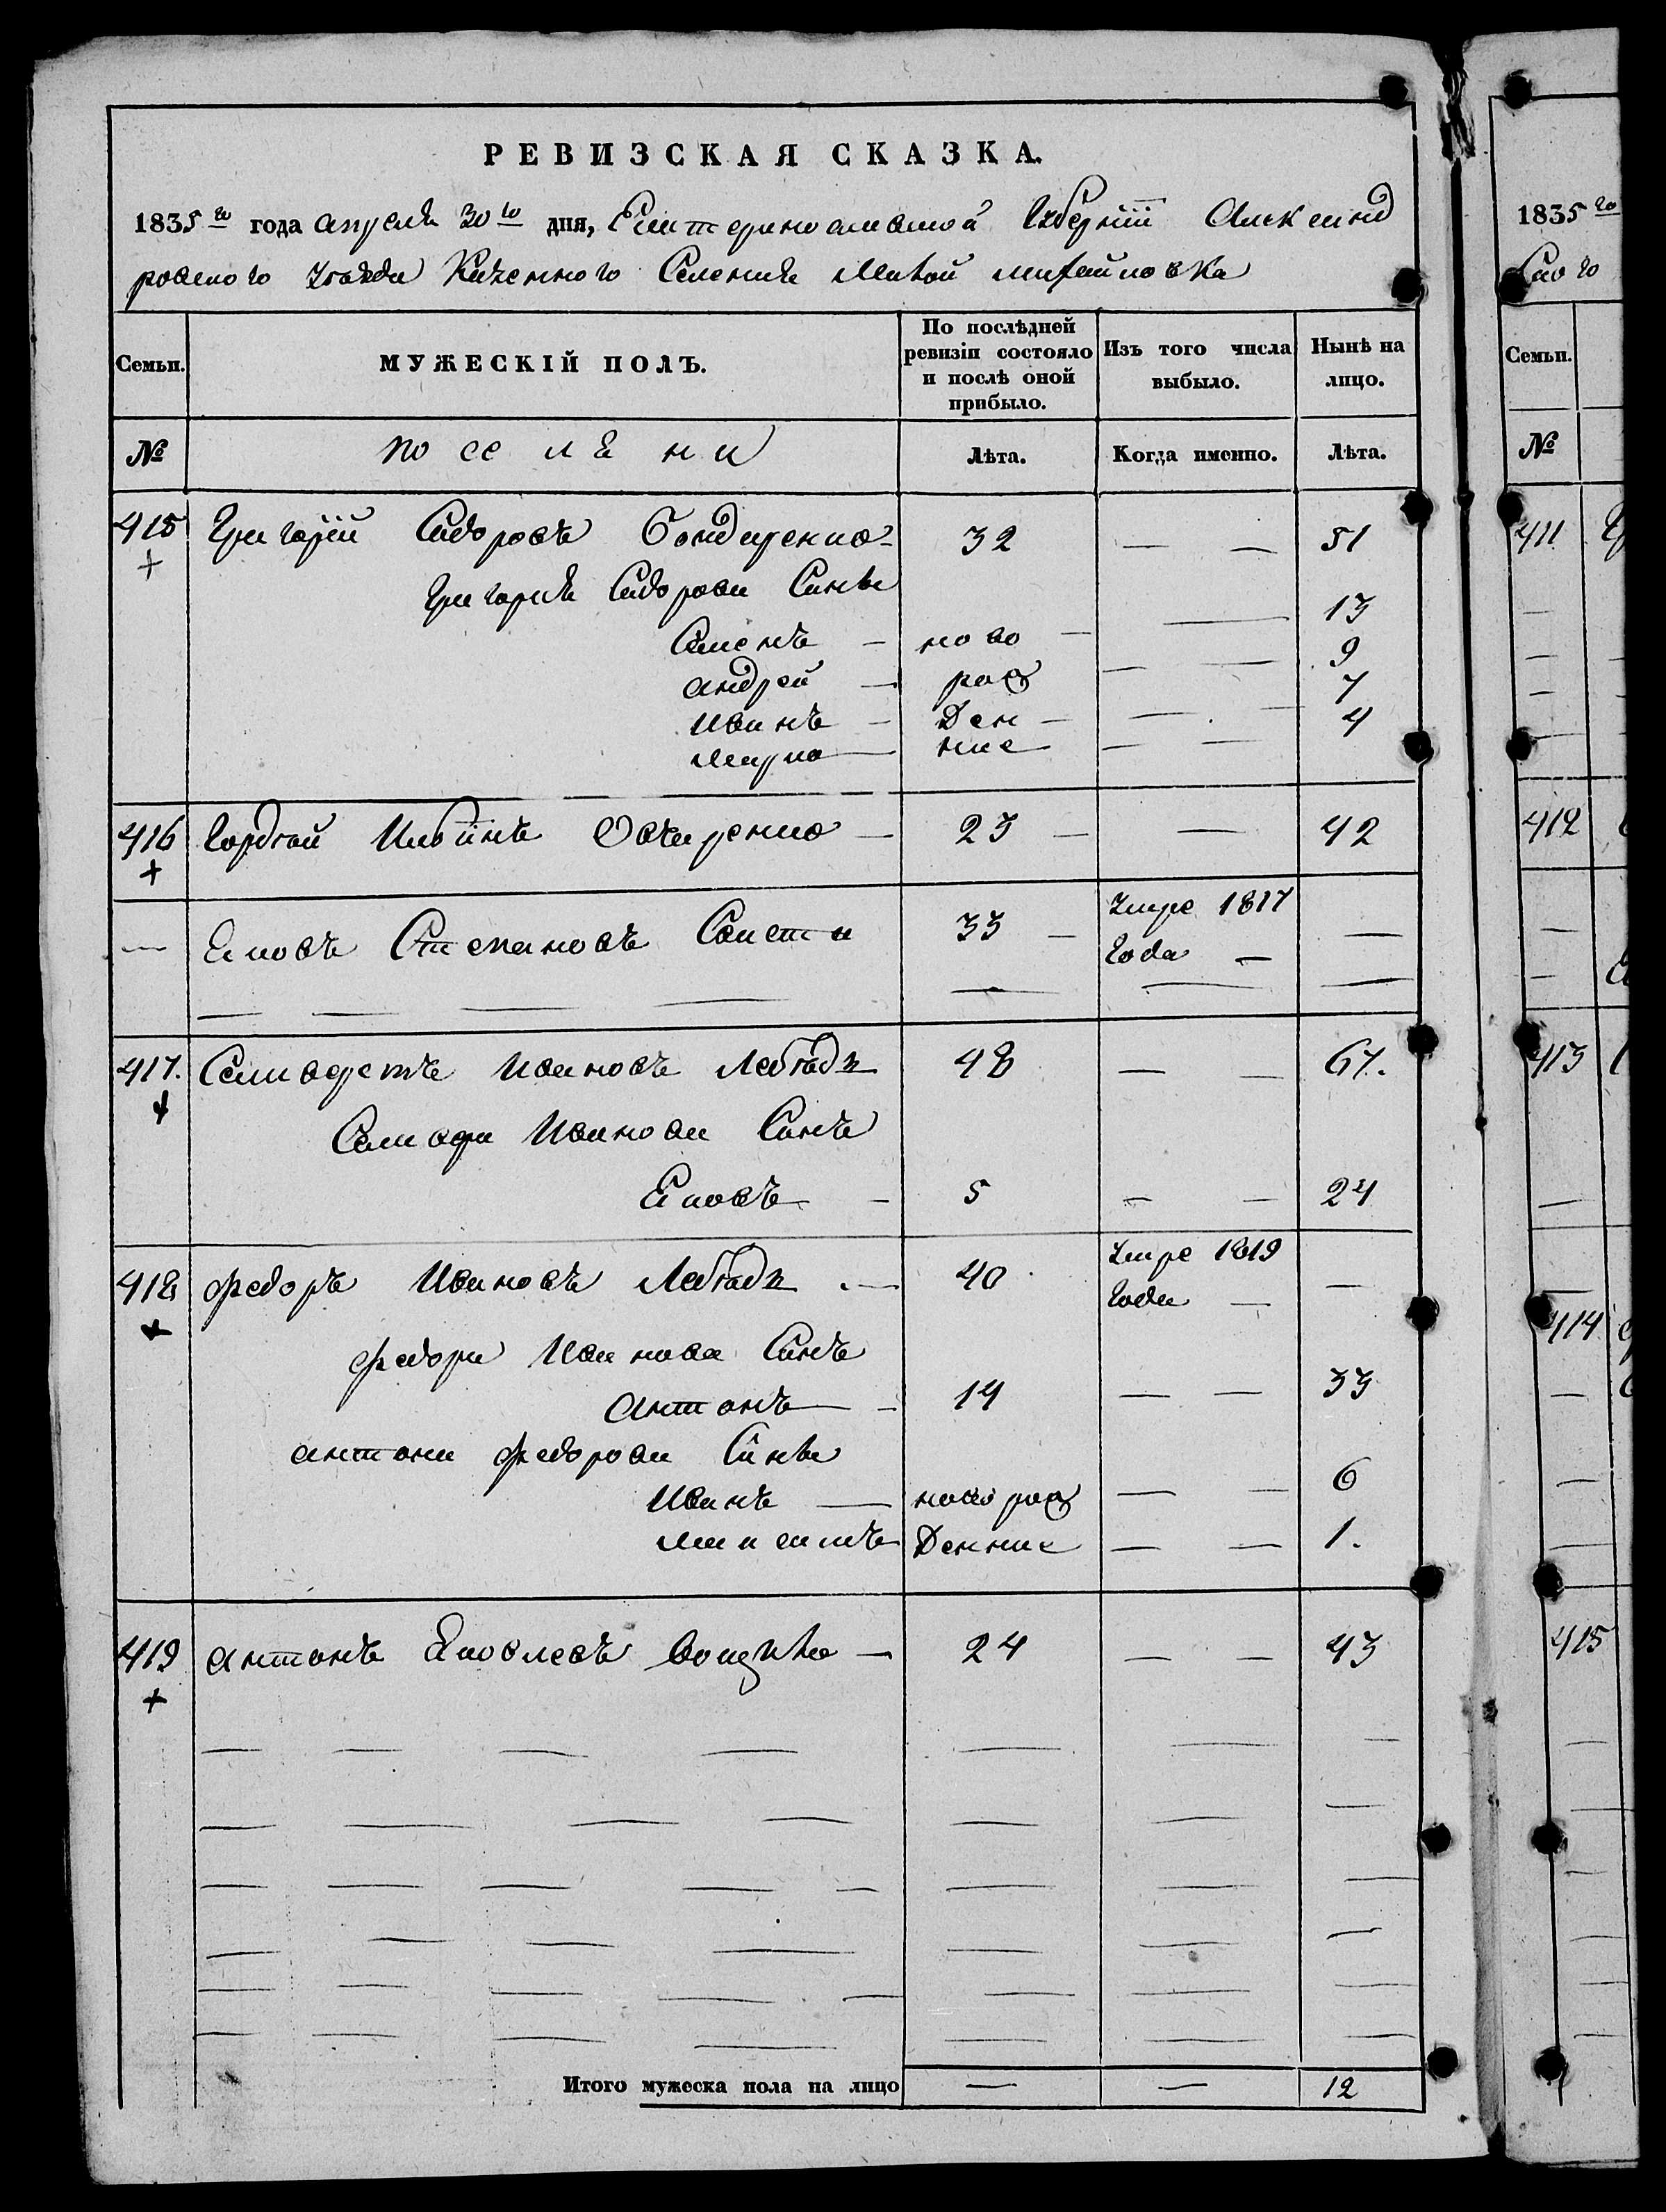 РЕВИЗСКАЯ СКАЗКА.
1835 го года апреля 30 го дня, Екатеринославской Губернiи Александ
ровского Уѣзда Казенного Селения Михайловка
Семьи.
МУЖЕСКIЙ ПОЛЪ.
По послѣдней ревизiи состояло и послѣ оной прибыло.
Изъ того числа выбыло.
Нынѣ на лицо.
№
Лѣта.
Когда именно.
Лѣта.
415 Григорiй Сидоровъ Бондаренко 32 — — 51
Григорія Сидорова Сини
Семенъ — ново — 13
Андрей — рож — — 9
Иванъ — ден — — — 7
Марко — ние — — 4
416 Гордѣй Ильiинъ Овчаренко — 23 — — 42
— Яковъ Степановъ 33 — Умре 1817 года — —
417. Ивановъ Лебѣдь 48 — — 67.
Иванова Синъ
Яковъ — 5 — — 24
418 Федоръ Ивановъ Лебѣдь — 40 Умре 1819 года — —
Федора Иванова Синъ
Антонъ — 14 — — 33
Антона Федорова Сини
Иванъ — новорож — — 6
Максимъ денние — — 1.
419 Антонъ Яковлевъ — 24 — — 43
Итого мужеска пола на лицо — — 12
1835 го
Семьи.
№
411
412
413
414
415